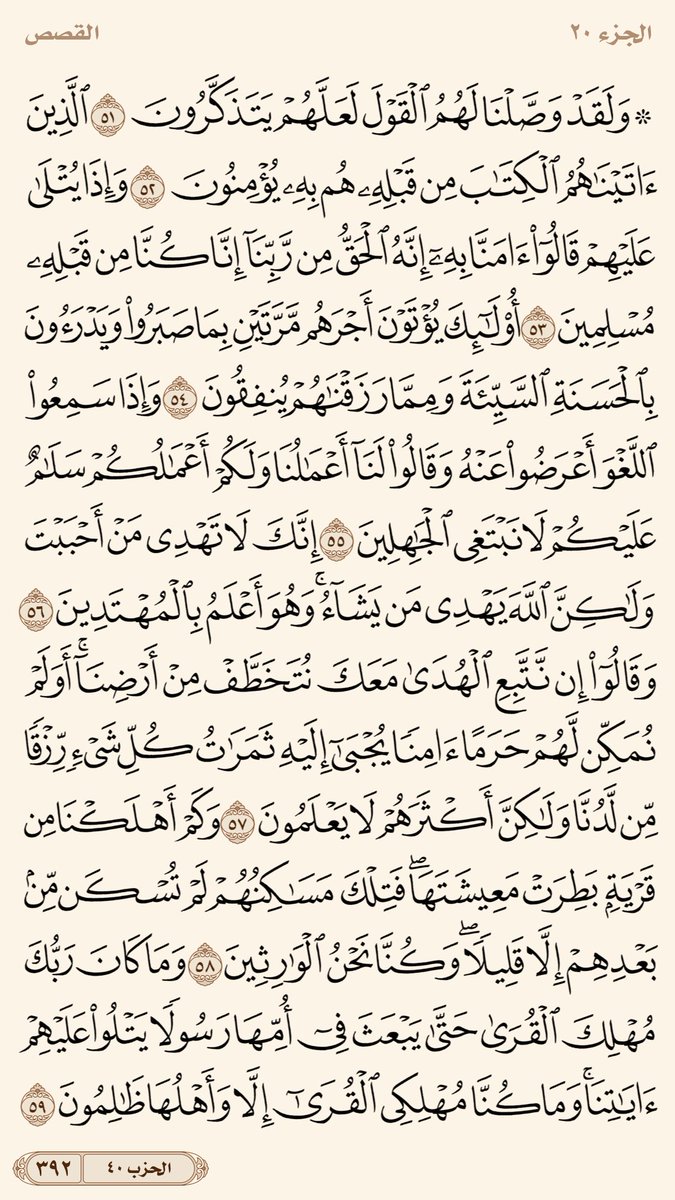 الجزء ٢٠ القصص
۞ وَلَقَدْ وَصَّلْنَا لَهُمُ ٱلْقَوْلَ لَعَلَّهُمْ يَتَذَكَّرُونَ ٥١ ٱلَّذِينَ
ءَاتَيْنَٰهُمُ ٱلْكِتَٰبَ مِن قَبْلِهِۦ هُم بِهِۦ يُؤْمِنُونَ ٥٢ وَإِذَا يُتْلَىٰ
عَلَيْهِمْ قَالُوٓا۟ ءَامَنَّا بِهِۦٓ إِنَّهُ ٱلْحَقُّ مِن رَّبِّنَآ إِنَّا كُنَّا مِن قَبْلِهِۦ
مُسْلِمِينَ ٥٣ أُو۟لَٰٓئِكَ يُؤْتَوْنَ أَجْرَهُم مَّرَّتَيْنِ بِمَا صَبَرُوا۟ وَيَدْرَءُونَ
بِٱلْحَسَنَةِ ٱلسَّيِّئَةَ وَمِمَّا رَزَقْنَٰهُمْ يُنفِقُونَ ٥٤ وَإِذَا سَمِعُوا۟
ٱللَّغْوَ أَعْرَضُوا۟ عَنْهُ وَقَالُوا۟ لَنَآ أَعْمَٰلُنَا وَلَكُمْ أَعْمَٰلُكُمْ سَلَٰمٌ
عَلَيْكُمْ لَا نَبْتَغِى ٱلْجَٰهِلِينَ ٥٥ إِنَّكَ لَا تَهْدِى مَنْ أَحْبَبْتَ
وَلَٰكِنَّ ٱللَّهَ يَهْدِى مَن يَشَآءُ ۚ وَهُوَ أَعْلَمُ بِٱلْمُهْتَدِينَ ٥٦
وَقَالُوٓا۟ إِن نَّتَّبِعِ ٱلْهُدَىٰ مَعَكَ نُتَخَطَّفْ مِنْ أَرْضِنَآ ۚ أَوَلَمْ
نُمَكِّن لَّهُمْ حَرَمًا ءَامِنًا يُجْبَىٰٓ إِلَيْهِ ثَمَرَٰتُ كُلِّ شَىْءٍ رِّزْقًا
مِّن لَّدُنَّا وَلَٰكِنَّ أَكْثَرَهُمْ لَا يَعْلَمُونَ ٥٧ وَكَمْ أَهْلَكْنَا مِن
قَرْيَةٍۭ بَطِرَتْ مَعِيشَتَهَا ۖ فَتِلْكَ مَسَٰكِنُهُمْ لَمْ تُسْكَن مِّنۢ
بَعْدِهِمْ إِلَّا قَلِيلًا ۖ وَكُنَّا نَحْنُ ٱلْوَٰرِثِينَ ٥٨ وَمَا كَانَ رَبُّكَ
مُهْلِكَ ٱلْقُرَىٰ حَتَّىٰ يَبْعَثَ فِىٓ أُمِّهَا رَسُولًا يَتْلُوا۟ عَلَيْهِمْ
ءَايَٰتِنَا ۚ وَمَا كُنَّا مُهْلِكِى ٱلْقُرَىٰٓ إِلَّا وَأَهْلُهَا ظَٰلِمُونَ ٥٩
الحزب ٤٠ ٣٩٢